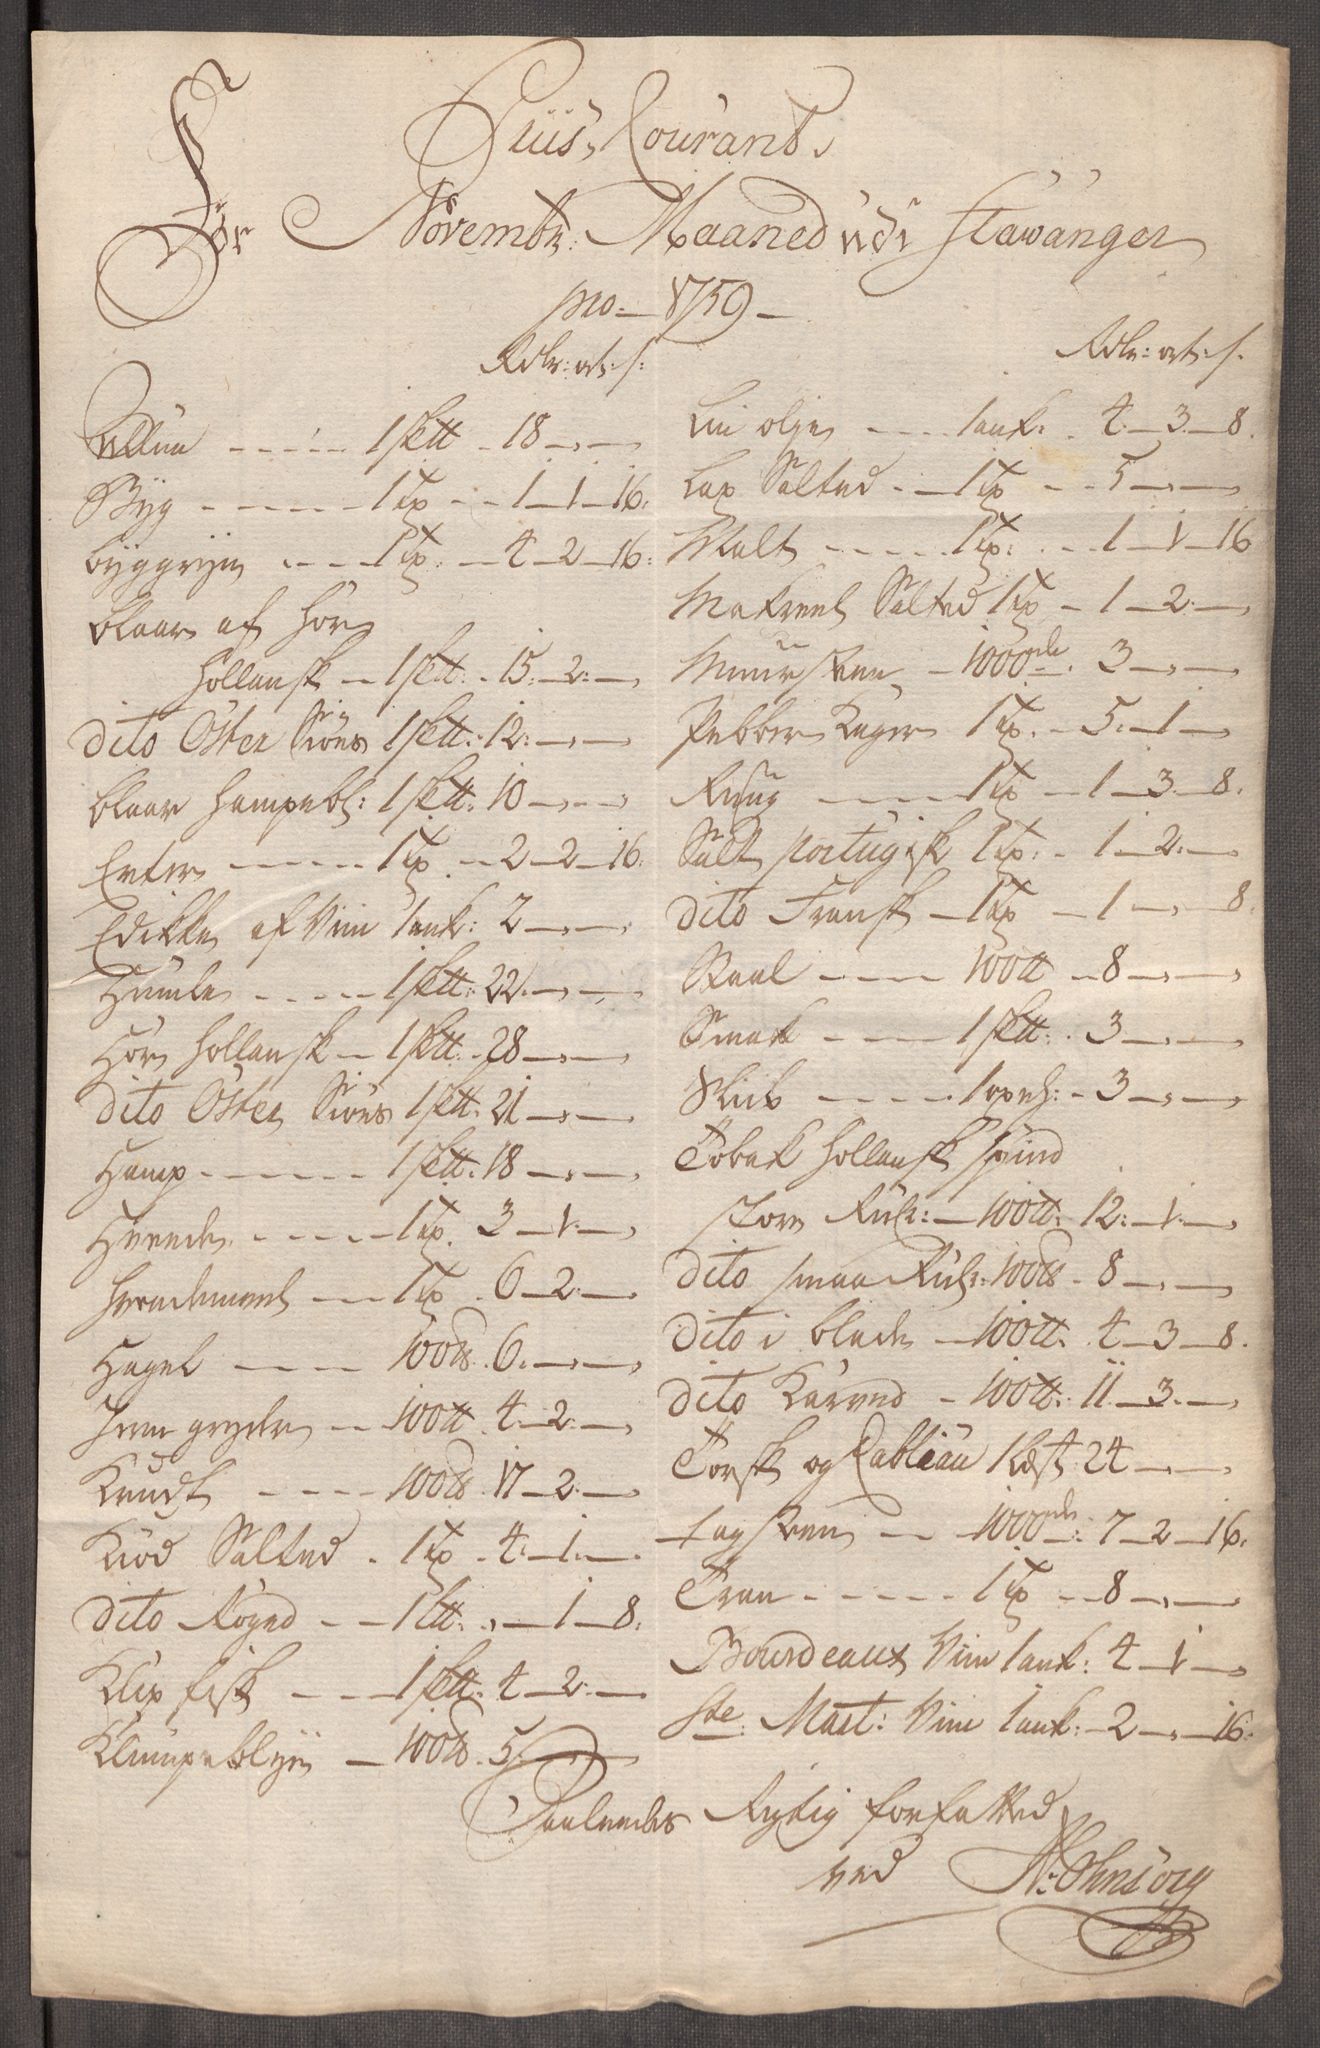 Priis Courant
For Novembr: Maaned udi Stawanger
pro 1759
Rdlr: ort: s:
Allun 1 sktt 18
Byg 1 Tp 1 1 16
Byggryn 1 Tp: 4 2 16
Blaar af Hør
Hollansk 1 sktt: 15 2
dito Øster Siøes 1 sktt: 12
Blaar Hampebl: 1 sktt: 10
Erter 1 Tp 2 2 16
Edikke af Viin 1 ank: 2
Humle 1 sktt: 22
Hør Hollansk 1 sktt: 28
dito Øster Siøes 1 sktt: 21
Hamp 1 sktt: 18
Hvede 1 Tp. 3 1
Hvedemeel 1 Tp 6 2
Hagel 100 tt 6
Jern gryder 100 tt 4 2
Krudt 100 tt 17 2
Kiød Salted 1 Tp 4 1
dito Røged 1 Ltt: 1 8
Klip fisk 1 sktt: 4 2
Klumpeblye 100 tt 5
Rdlr: ort: s.
Lin olje 1 ank: 4 3 8
Lax Salted 1 Tp 5
Malt 1 Tp: 1 1 16
Makreel Salted 1 Tp 1 2
Muur steen 1000de 3
Pebber Kager 1 Tp. 5 1
Ruug 1 Tp 1 3 8
Salt portugisk 1 Tp: 1 2
dito Fransk 1 Tp 1 8
Staal 100 tt 8
Smak 1 sktt: 3
Skiib 3
Tobak Hollansk spind
store Rul: 100 tt: 12 1
dito smaa Rul: 100 tt 8
dito i blade 100 tt: 4 3 8
dito Karved 100 tt: 11 3
Torsk og Cabliau 1 Læst 24
Tagsteen 1000de: 7 2 16
Tran 1 Tp 8
Bourdeaux Viin 1 ank: 4 1
Ste: Mart: Viin 1 ank: 2 16
Saaledes Rigtig forfatted
ved N: Ohnsorg